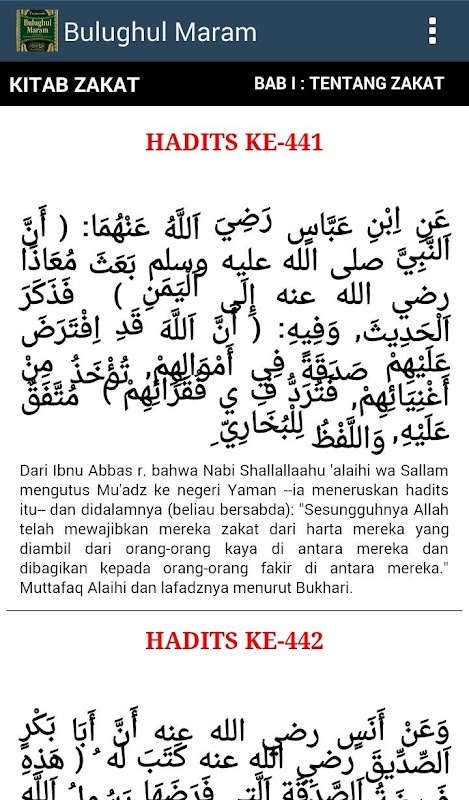 Bulughul Maram
Bulughul Maram
KITAB ZAKAT
BAB I : TENTANG ZAKAT
HADITS KE-441
عَنِ اِبْنِ عَبَّاسٍ رَضِيَ اَللَّهُ عَنْهُمَا: ( أَنَّ
اَلنَّبِيَّ صلى الله عليه وسلم بَعَثَ مُعَاذًا
رضي الله عنه إِلَى اَلْيَمَنِ ) فَذَكَرَ
اَلْحَدِيثَ, وَفِيهِ: ( أَنَّ اَللَّهَ قَدِ اِفْتَرَضَ
عَلَيْهِمْ صَدَقَةً فِي أَمْوَالِهِمْ, تُؤْخَذُ مِنْ
أَغْنِيَائِهِمْ, فَتُرَدُّ فِ ي فُقَرَائِهِمْ ) مُتَّفَقٌ
عَلَيْهِ, وَاللَّفْظُ لِلْبُخَارِيِّ.
Dari Ibnu Abbas r. bahwa Nabi Shallallaahu 'alaihi wa Sallam
mengutus Mu'adz ke negeri Yaman --ia meneruskan hadits
itu-- dan didalamnya (beliau bersabda): "Sesungguhnya Allah
telah mewajibkan mereka zakat dari harta mereka yang
diambil dari orang-orang kaya di antara mereka dan
dibagikan kepada orang-orang fakir di antara mereka."
Muttafaq Alaihi dan lafadznya menurut Bukhari.
HADITS KE-442
وَعَنْ أَنَسٍ رضي الله عنه أَنَّ أَبَا بَكْرٍ
اَلصِّدِّيقَ رضي الله عنه كَتَبَ لَه ُ ( هَذِهِ
فَرِيضَةُ اَلصَّدَقَةِ اَلَّتِي فَرَضَهَا رَسُولُ اَللَّهِ